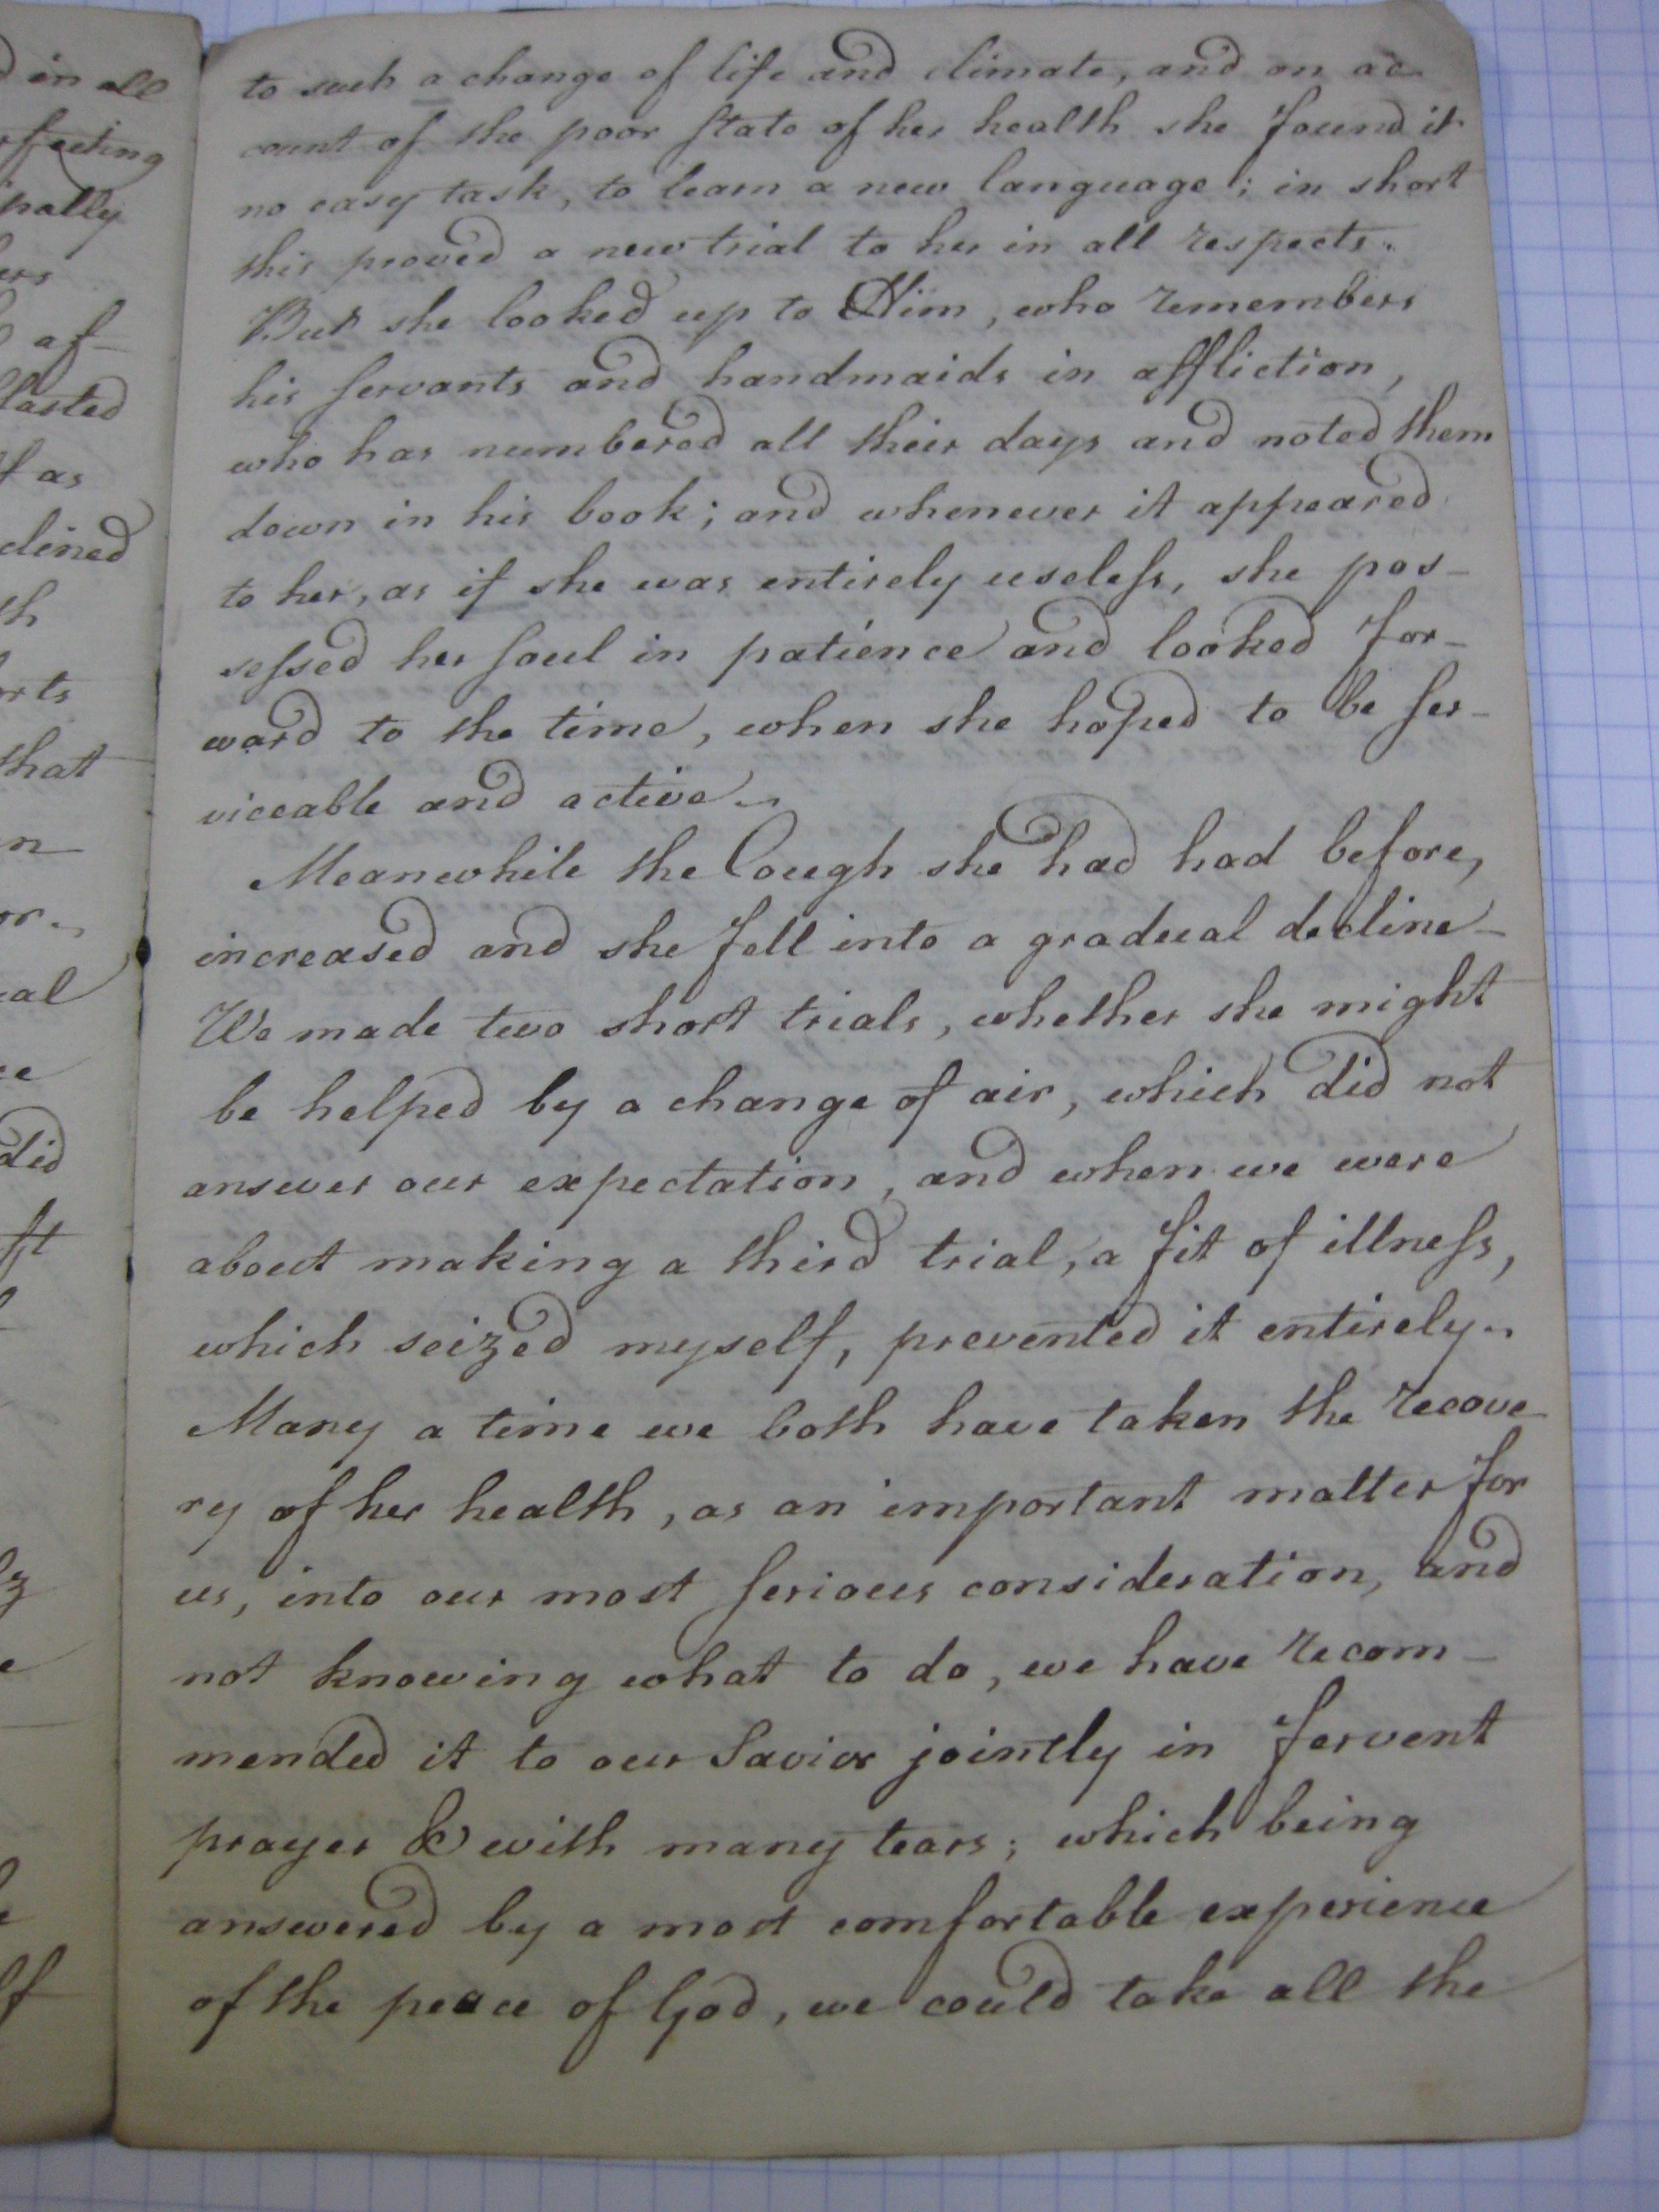 in all
pally
af-
lasted
as
clined
that
did
to such a change of life and climate, and on ac-
count of the poor state of her health she found it
no easy task, to learn a new language; in short
this proved a new trial to her in all respects.
But she looked up to Him, who remembers
his servants and handmaids in affliction,
who has numbered all their days and noted them
down in his book; and whenever it appeared
to her, as if she was entirely useless, she pos-
sessed her soul in patience and looked for-
ward to the time, when she hoped to be ser-
viceable and active.
Meanwhile the Cough she had had before,
increased and she fell into a gradual decline-
We made two short trials, whether she might
be helped by a change of air, which did not
answer our expectation, and when we were
about making a third trial, a fit of illness,
which seized myself, prevented it entirely.
Many a time we both have taken the recove-
ry of her health, as an important matter for
us, into our most serious consideration, and
not knowing what to do, we have recom-
mended it to our Savior jointly in fervent
prayer & with many tears; which being
answered by a most comfortable experience
of the peace of God, we could take all the